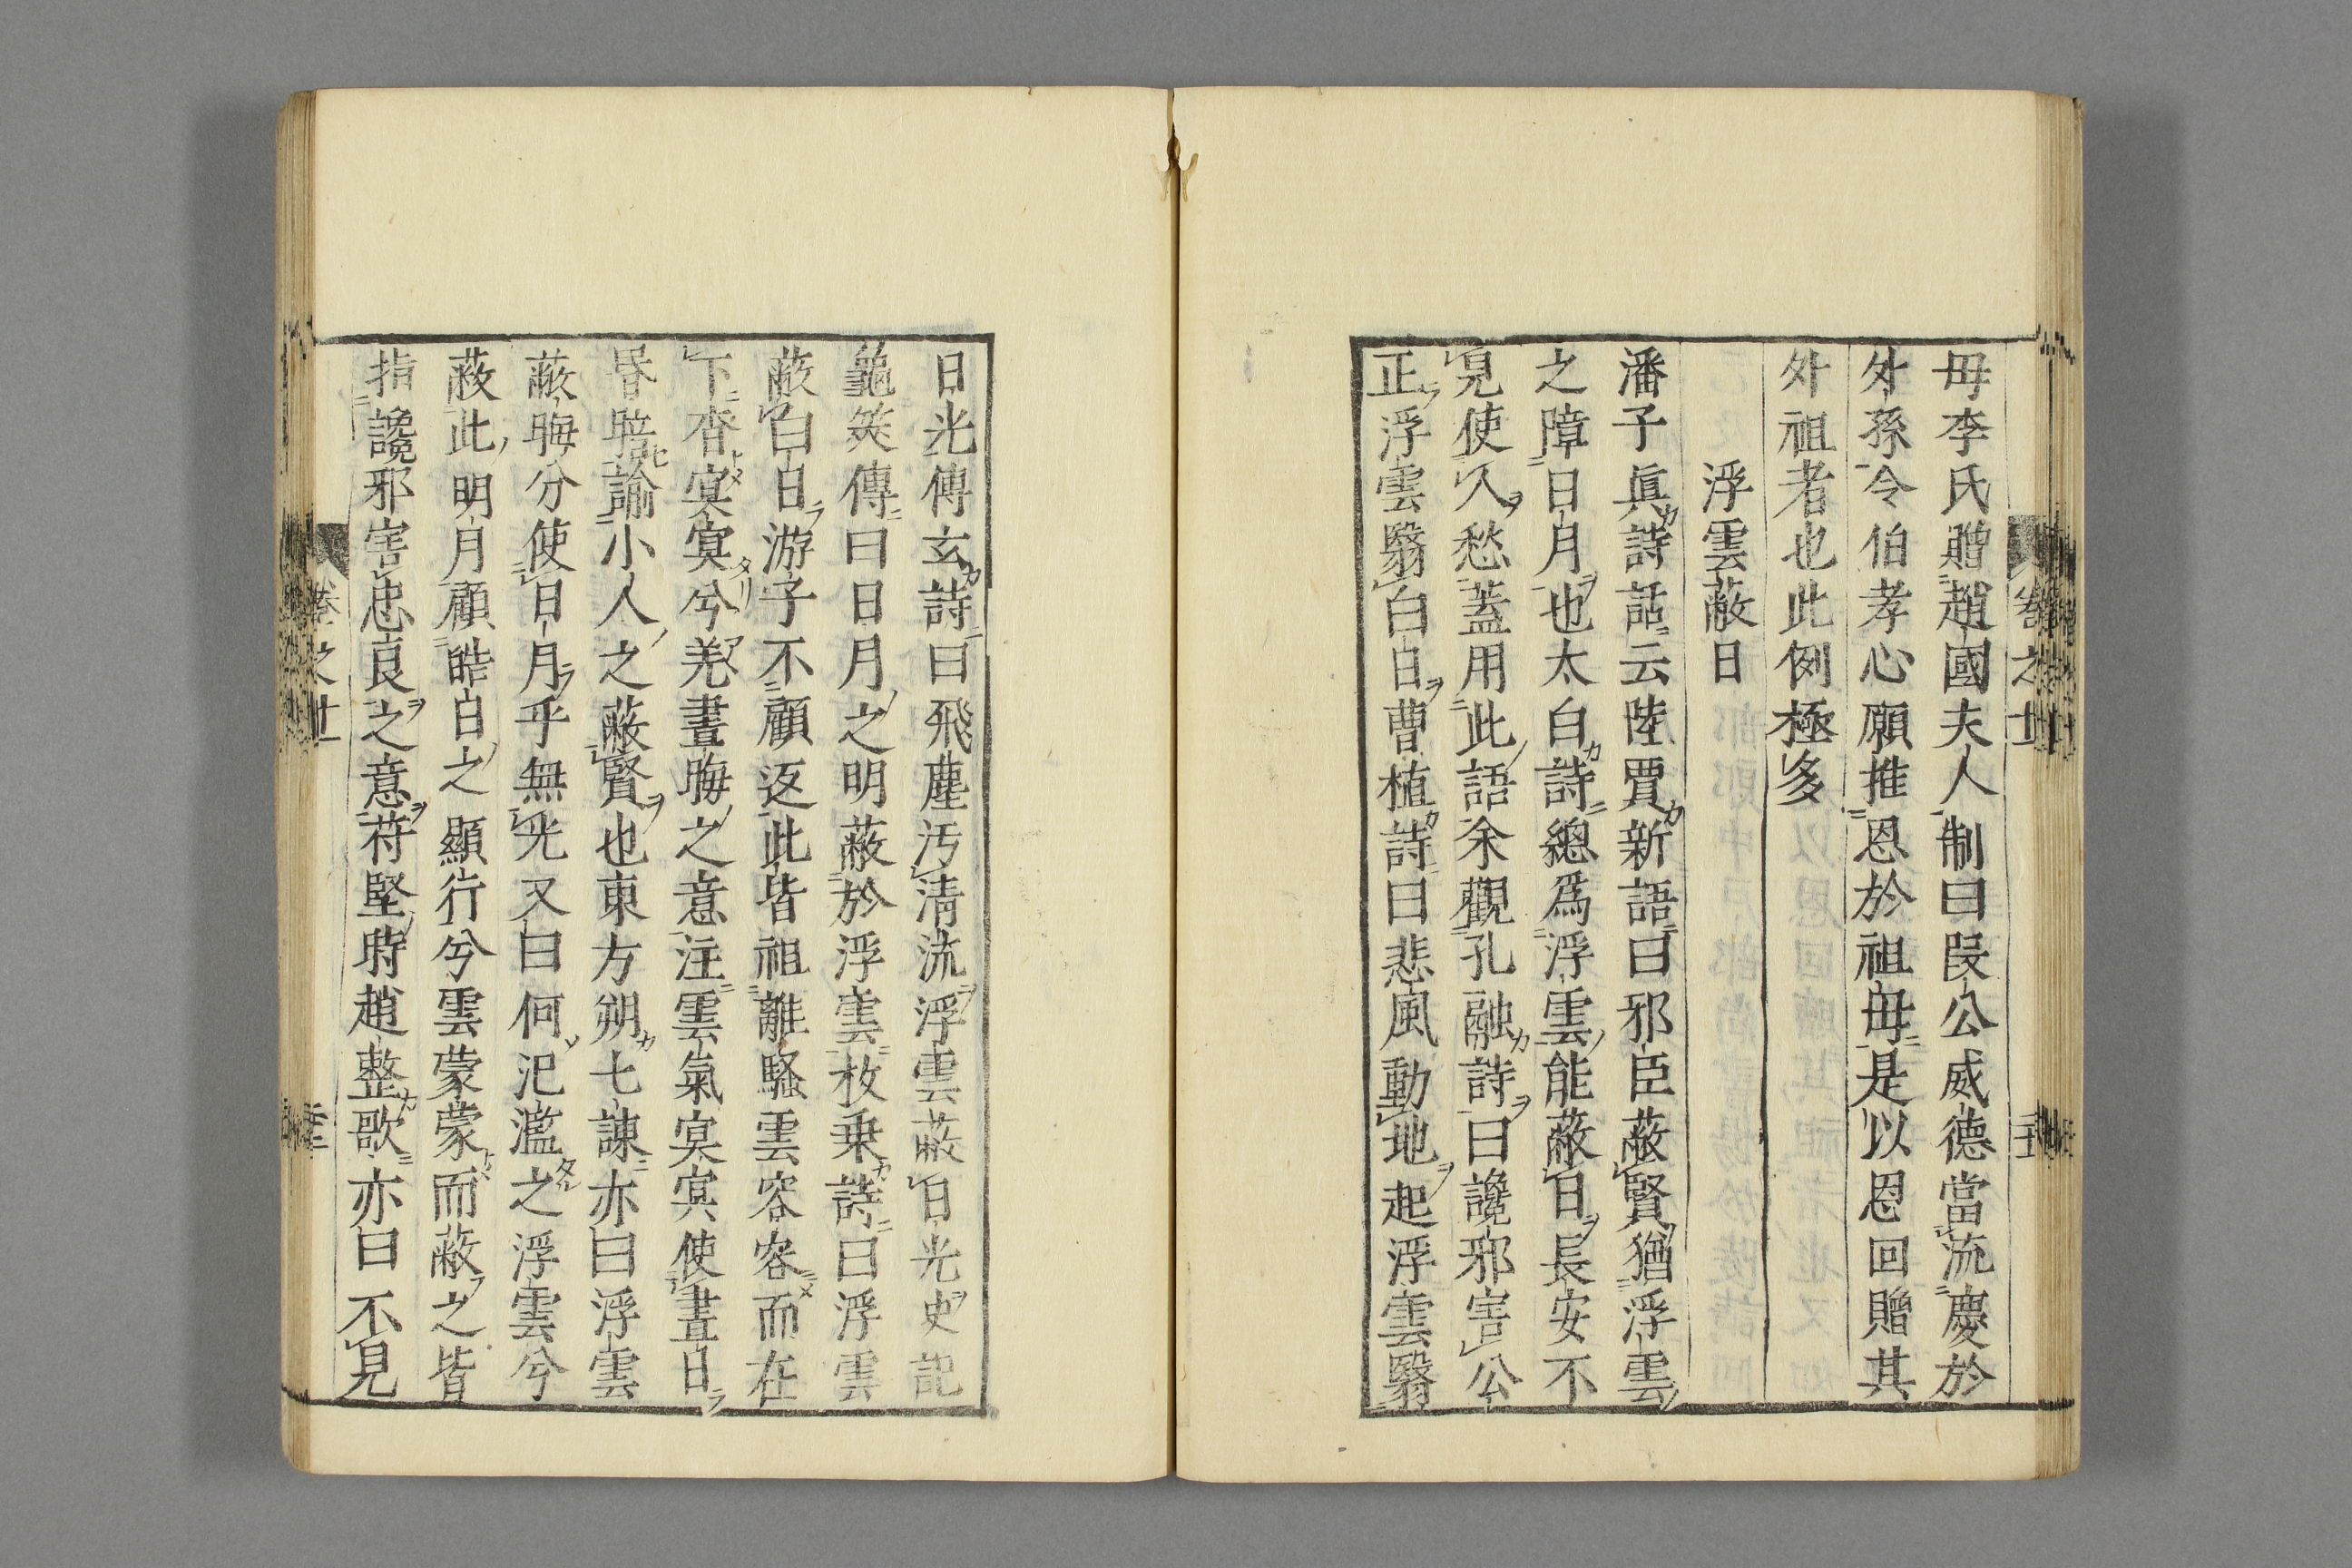 母李氏贈趙國夫人制曰叚公威德當流慶於
外孫令伯孝心願推恩於祖母是以恩回贈其
外祖者也此例極多
浮雲蔽日
潘子眞詩話云陸賈新語曰邪臣蔽賢猶浮雲
之障日月也太白詩總爲浮雲能蔽日長安不
見使人愁蓋用此語余觀孔融詩曰讒邪害公
正浮雲翳白日曹植詩曰悲風動地起浮雲翳
日光傅玄詩曰飛塵汚淸流浮雲蔽日光史記
龜筴傳曰日月之明蔽於浮雲枚乗詩曰浮雲
蔽白日游子不顧返此皆祖離騷雲容容而在
下杳冥冥兮羌晝晦之意注雲氣冥冥使晝日
昬暗諭小人之蔽賢也東方朔七諫亦曰浮雲
蔽晦分使日月乎無光又曰何氾濫之浮雲兮
蔽此明月顧皓白之顯行兮雲蒙蒙而蔽之皆
指讒邪害忠良之意苻堅時趙整歌亦曰不見
卷之廿